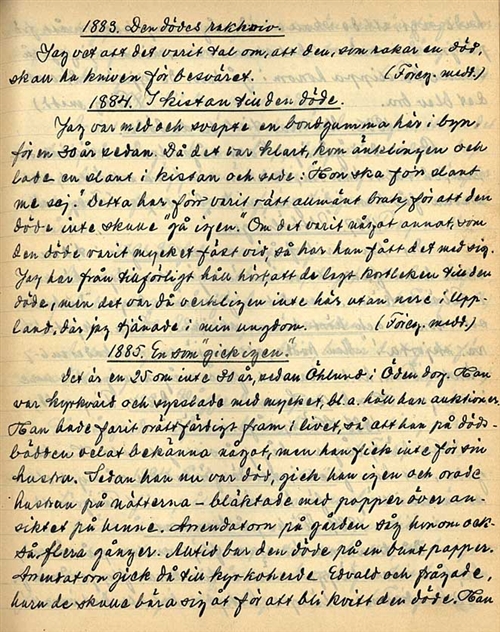 1883. Den dödes rakkniv.
Jag vet att det varit tal om, att den, som rakar en död,
skall ha kniven för besväret. (Föreg. medt.)
1884. I kistan till den döde.
Jag var med och svepte en bondgumma här i byn
för en 30 år sedan. Då det var klart, kom änklingen och
lade en slant i kistan och sade: "Hon ska få'n slant
me sej." Detta har förr varit rätt allmänt bruk, för att den
döde inte skulle "gå igen." Om det varit något annat, som
den döde varit mycket fäst vid, så har han fått det med sig.
Jag har från tillförligt håll hört, att de lagt kortleken till den
döde, men det var då verkligen inte här utan nere i Upp-
land, där jag tjänade i min ungdom. (Föreg. medt.)
1885. En som "gick igen."
Det är en 25 om inte 30 år, sedan Öhlund i Öden dog. Han
var kyrkvärd och sysslade med mycket, bl.a. höll han auktioner.
Han hade farit orättfärdigt fram i livet, så att han på döds-
bädden velat bekänna något, men han fick inte för sin
hustru. Sedan han nu var död, gick han igen och oroade
hustrun på nätterna – bläktade med papper över an-
siktet på henne. Arrendatorn på gården såg honom ock-
så flera gånger. Alltid bar den döde på en bunt papper.
Arrendatorn gick då till kyrkoherde Edvald och frågade,
huru de skulle bära sig åt för att bli kvitt den döde. Han